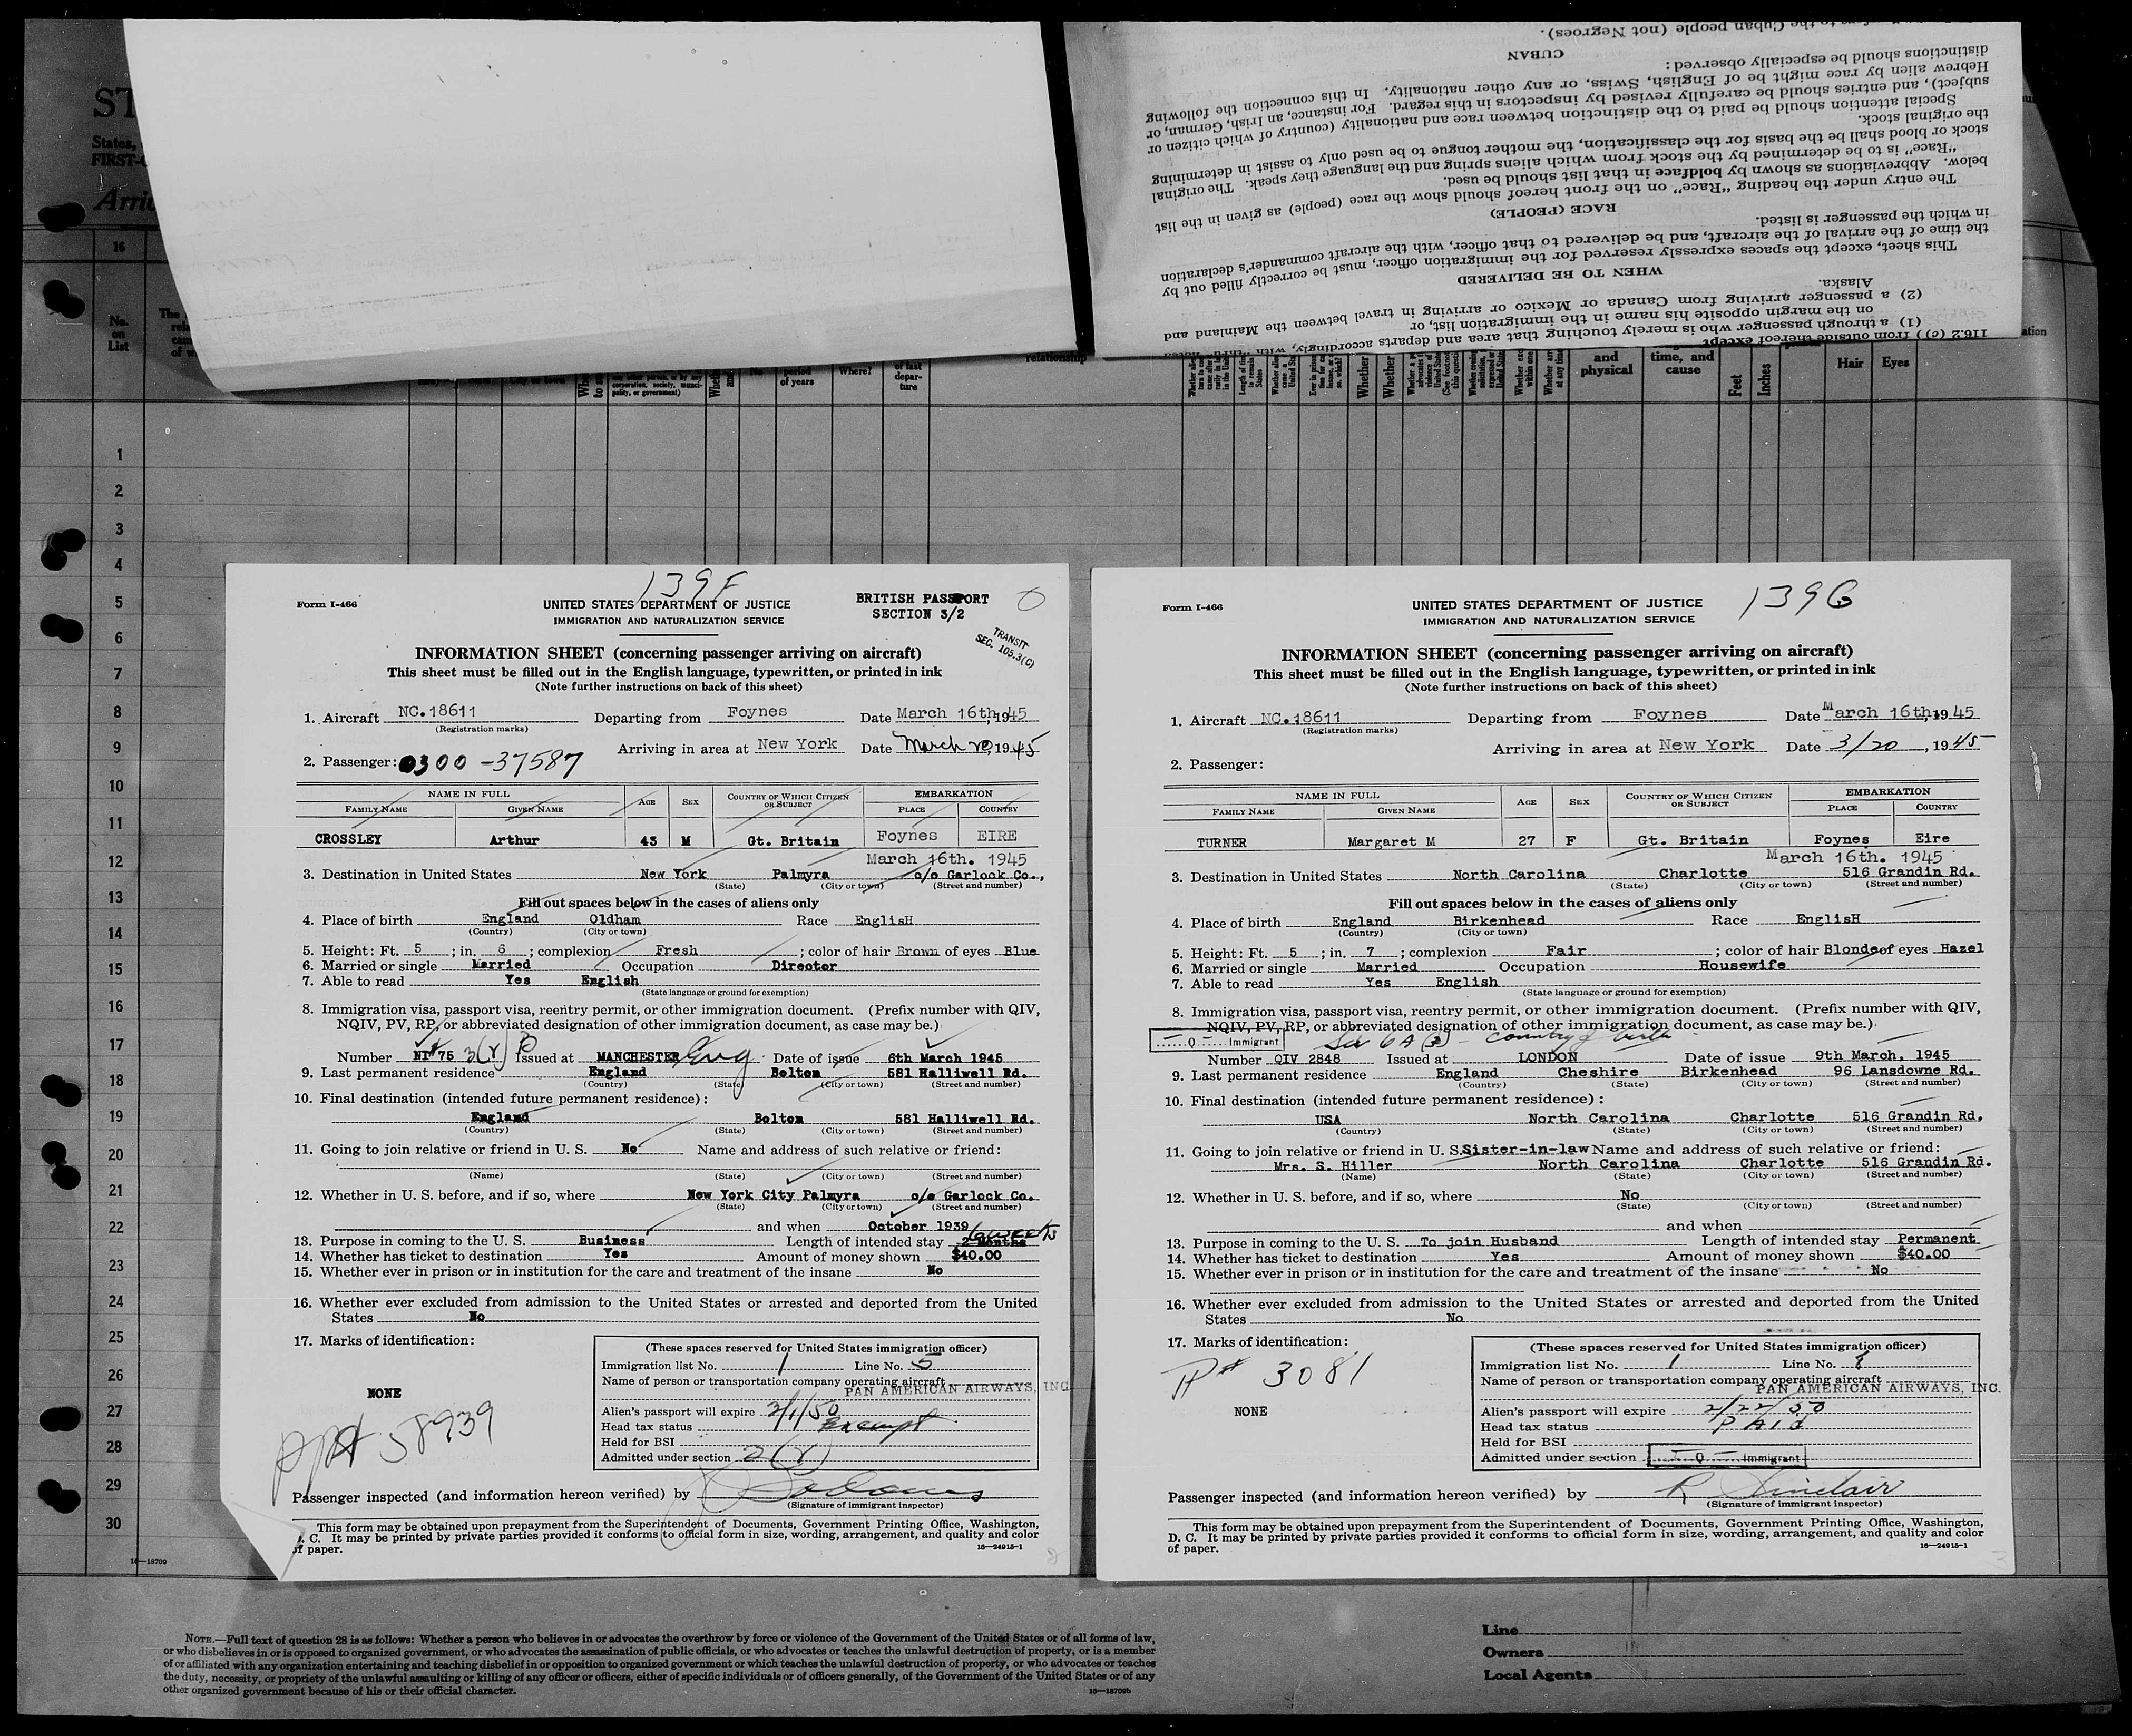 ST
States,
FIRST-C
Arri
16
No.
on
List
The
rela
of w
116.2 (c)) from outside thereof except
(1) a through passenger who is merely touching that area and departs accordingly, with
on the margin opposite his name in the immigration list, or
(2) a passenger arriving from Canada or Mexico or arriving in travel between the Mainland and
Alaska.
WHEN TO BE DELIVERED
This sheet, except the spaces expressly reserved for the immigration officer, must be correctly filled out by
the time of the arrival of the aircraft, and be delivered to that officer, with the aircraft commander's declaration
in which the passenger is listed.
RACE (PEOPLE)
The entry under the heading "Race" on the front hereof should show the race (people) as given in the list
below. Abbreviations as shown by boldface in that list should be used.
"Race" is to be determined by the stock from which aliens spring and the language they speak. The original
stock or blood shall be the basis for the classification, the mother tongue to be used only to assist in determining
the original stock.
Special attention should be paid to the distinction between race and nationality (country of which citizen or
subject), and entries should be carefully revised by inspectors in this regard. For instance, an Irish, German, or
Hebrew alien by race might be of English, Swiss, or any other nationality. In this connection the following
distinctions should be especially observed:
CUBAN
the Cuban people (not Negroes).
period
of years
Where?
of last
depar-
ture
relationship
and
physical
time, and
cause
Feet
Inches
Hair
Eyes
1
2
3
4
5
6
7
8
9
10
11
12
13
14
15
16
17
18
19
20
21
22
23
24
25
26
27
28
29
30
16—18709
139F
Form I-466
UNITED STATES DEPARTMENT OF JUSTICE
IMMIGRATION AND NATURALIZATION SERVICE
BRITISH PASSPORT
SECTION 3/2
TRANSIT
SEC. 105.3(C)
INFORMATION SHEET (concerning passenger arriving on aircraft)
This sheet must be filled out in the English language, typewritten, or printed in ink
(Note further instructions on back of this sheet)
1. Aircraft NC.18611 Departing from Foynes Date March 16th, 1945
(Registration marks)
Arriving in area at New York Date March 20, 1945
2. Passenger: 0300-37587
NAME IN FULL AGE SEX COUNTRY OF WHICH CITIZEN OR SUBJECT EMBARKATION
FAMILY NAME GIVEN NAME PLACE COUNTRY
CROSSLEY Arthur 43 M Gt. Britain Foynes EIRE
March 16th. 1945
3. Destination in United States New York Palmyra c/o Garlock Co.,
(State) (City or town) (Street and number)
Fill out spaces below in the cases of aliens only
4. Place of birth England Oldham Race EnglisH
(Country) (City or town)
5. Height: Ft. 5 ; in. 6 ; complexion Fresh ; color of hair Brown of eyes Blue
6. Married or single Married Occupation Director
7. Able to read Yes English
(State language or ground for exemption)
8. Immigration visa, passport visa, reentry permit, or other immigration document. (Prefix number with QIV,
NQIV, PV, RP, or abbreviated designation of other immigration document, as case may be.)
Number 75 3(2) Issued at MANCHESTER Eng Date of issue 6th March 1945
9. Last permanent residence England Bolton 581 Halliwell Rd.
(Country) (State) (City or town) (Street and number)
10. Final destination (intended future permanent residence):
England Bolton 581 Halliwell Rd.
(Country) (State) (City or town) (Street and number)
11. Going to join relative or friend in U. S. No Name and address of such relative or friend:
(Name) (State) (City or town) (Street and number)
12. Whether in U. S. before, and if so, where New York City Palmyra c/o Garlock Co.
(State) (City or town) (Street and number)
and when October 1939
13. Purpose in coming to the U. S. Business Length of intended stay 2 Months 6 weeks
14. Whether has ticket to destination Yes Amount of money shown $40.00
15. Whether ever in prison or in institution for the care and treatment of the insane No
16. Whether ever excluded from admission to the United States or arrested and deported from the United
States No
17. Marks of identification:
NONE
ppt 58939
(These spaces reserved for United States immigration officer)
Immigration list No. 1 Line No. 5
Name of person or transportation company operating aircraft
PAN AMERICAN AIRWAYS, INC
Alien's passport will expire 3/1/50
Head tax status Exempt
Held for BSI
Admitted under section 3(2)
Passenger inspected (and information hereon verified) by
(Signature of immigrant inspector)
This form may be obtained upon prepayment from the Superintendent of Documents, Government Printing Office, Washington,
. C. It may be printed by private parties provided it conforms to official form in size, wording, arrangement, and quality and color
of paper.
16—24915-1
139G
Form I-466
UNITED STATES DEPARTMENT OF JUSTICE
IMMIGRATION AND NATURALIZATION SERVICE
INFORMATION SHEET (concerning passenger arriving on aircraft)
This sheet must be filled out in the English language, typewritten, or printed in ink
(Note further instructions on back of this sheet)
1. Aircraft NC.18611 Departing from Foynes Date March 16th, 1945
(Registration marks)
Arriving in area at New York Date 3/20, 1945
2. Passenger:
NAME IN FULL AGE SEX COUNTRY OF WHICH CITIZEN OR SUBJECT EMBARKATION
FAMILY NAME GIVEN NAME PLACE COUNTRY
TURNER Margaret M 27 F Gt. Britain Foynes Eire
March 16th. 1945
3. Destination in United States North Carolina Charlotte 516 Grandin Rd.
(State) (City or town) (Street and number)
Fill out spaces below in the cases of aliens only
4. Place of birth England Birkenhead Race EnglisH
(Country) (City or town)
5. Height: Ft. 5 ; in. 7 ; complexion Fair ; color of hair Blonde of eyes Hazel
6. Married or single Married Occupation Housewife
7. Able to read Yes English
(State language or ground for exemption)
8. Immigration visa, passport visa, reentry permit, or other immigration document. (Prefix number with QIV,
NQIV, PV, RP, or abbreviated designation of other immigration document, as case may be.)
Q Immigrant Sec 6A(3) - country of birth
Number QIV 2848 Issued at LONDON Date of issue 9th March, 1945
9. Last permanent residence England Cheshire Birkenhead 96 Lansdowne Rd.
(Country) (State) (City or town) (Street and number)
10. Final destination (intended future permanent residence):
USA North Carolina Charlotte 516 Grandin Rd.
(Country) (State) (City or town) (Street and number)
11. Going to join relative or friend in U. S. Sister-in-law Name and address of such relative or friend:
Mrs. S. Hiller North Carolina Charlotte 516 Grandin Rd.
(Name) (State) (City or town) (Street and number)
12. Whether in U. S. before, and if so, where No
(State) (City or town) (Street and number)
and when
13. Purpose in coming to the U. S. To join Husband Length of intended stay Permanent
14. Whether has ticket to destination Yes Amount of money shown $40.00
15. Whether ever in prison or in institution for the care and treatment of the insane No
16. Whether ever excluded from admission to the United States or arrested and deported from the United
States No
17. Marks of identification:
P# 3081
NONE
(These spaces reserved for United States immigration officer)
Immigration list No. 1 Line No. 8
Name of person or transportation company operating aircraft
PAN AMERICAN AIRWAYS, INC.
Alien's passport will expire 2/22/50
Head tax status PAId
Held for BSI
Admitted under section Q Immigrant
Passenger inspected (and information hereon verified) by R Sinclair
(Signature of immigrant inspector)
This form may be obtained upon prepayment from the Superintendent of Documents, Government Printing Office, Washington,
D. C. It may be printed by private parties provided it conforms to official form in size, wording, arrangement, and quality and color
of paper.
16—24915-1
NOTE.—Full text of question 28 is as follows: Whether a person who believes in or advocates the overthrow by force or violence of the Government of the United States or of all forms of law,
or who disbelieves in or is opposed to organized government, or who advocates the assassination of public officials, or who advocates or teaches the unlawful destruction of property, or is a member
of or affiliated with any organization entertaining and teaching disbelief in or opposition to organized government or which teaches the unlawful destruction of property, or who advocates or teaches
the duty, necessity, or propriety of the unlawful assaulting or killing of any officer or officers, either of specific individuals or of officers generally, of the Government of the United States or of any
other organized government because of his or their official character.
16—18709b
Line
Owners
Local Agents